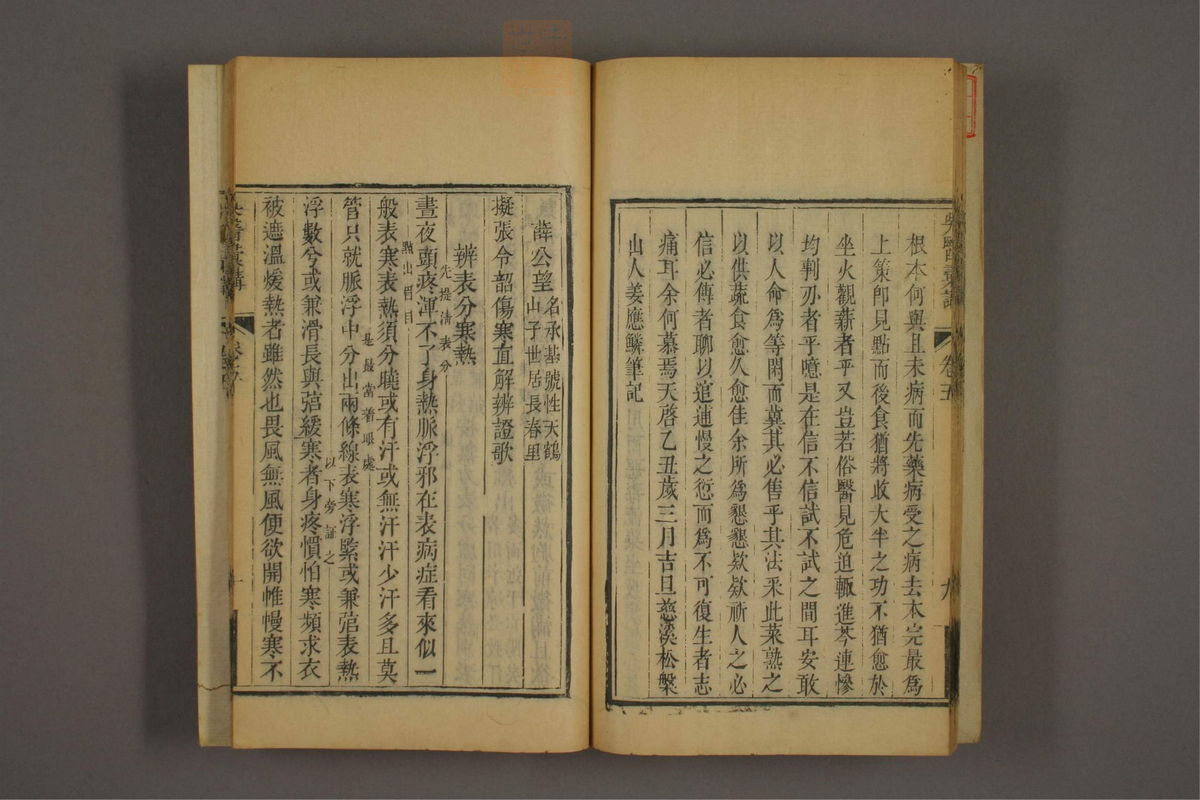 根本何與且未病而先藥病受之病去本完最為
上策卽見點而後食猶將收大半之功不猶愈於
坐火觀薪者乎又豈若俗醫見危迫輒進芩連慘
均刺刃者乎噫是在信不信試不試之間耳安敢
以人命為等閑而冀其必售乎其法采此菜熟之
以供蔬食愈久愈佳余所為懇懇欵欵祈人之必
信必傳者聊以逭逋慢之愆而為不可復生者志
痛耳余何慕焉天啓乙丑歲三月吉旦慈溪松槃
山人姜應鱗筆記
吳醫彙講
卷五
九
薛公望
名承基號性天鶴
山子世居長春里
擬張令韶傷寒直解辨證歌
辨表分寒熱
先提清表分
晝夜頭疼渾不了身熱脈浮邪在表病症看來似一
點出眉目
般表寒表熱須分曉或有汗或無汗汗少汗多且莫
是最當着眼處
管只就脈浮中分出兩條線表寒浮緊或兼弦表熱
浮數兮或兼滑長與弦緩寒者身疼慣怕寒頻求衣
以下旁証之
被遮溫煖熱者雖然也畏風無風便欲開帷幔寒不